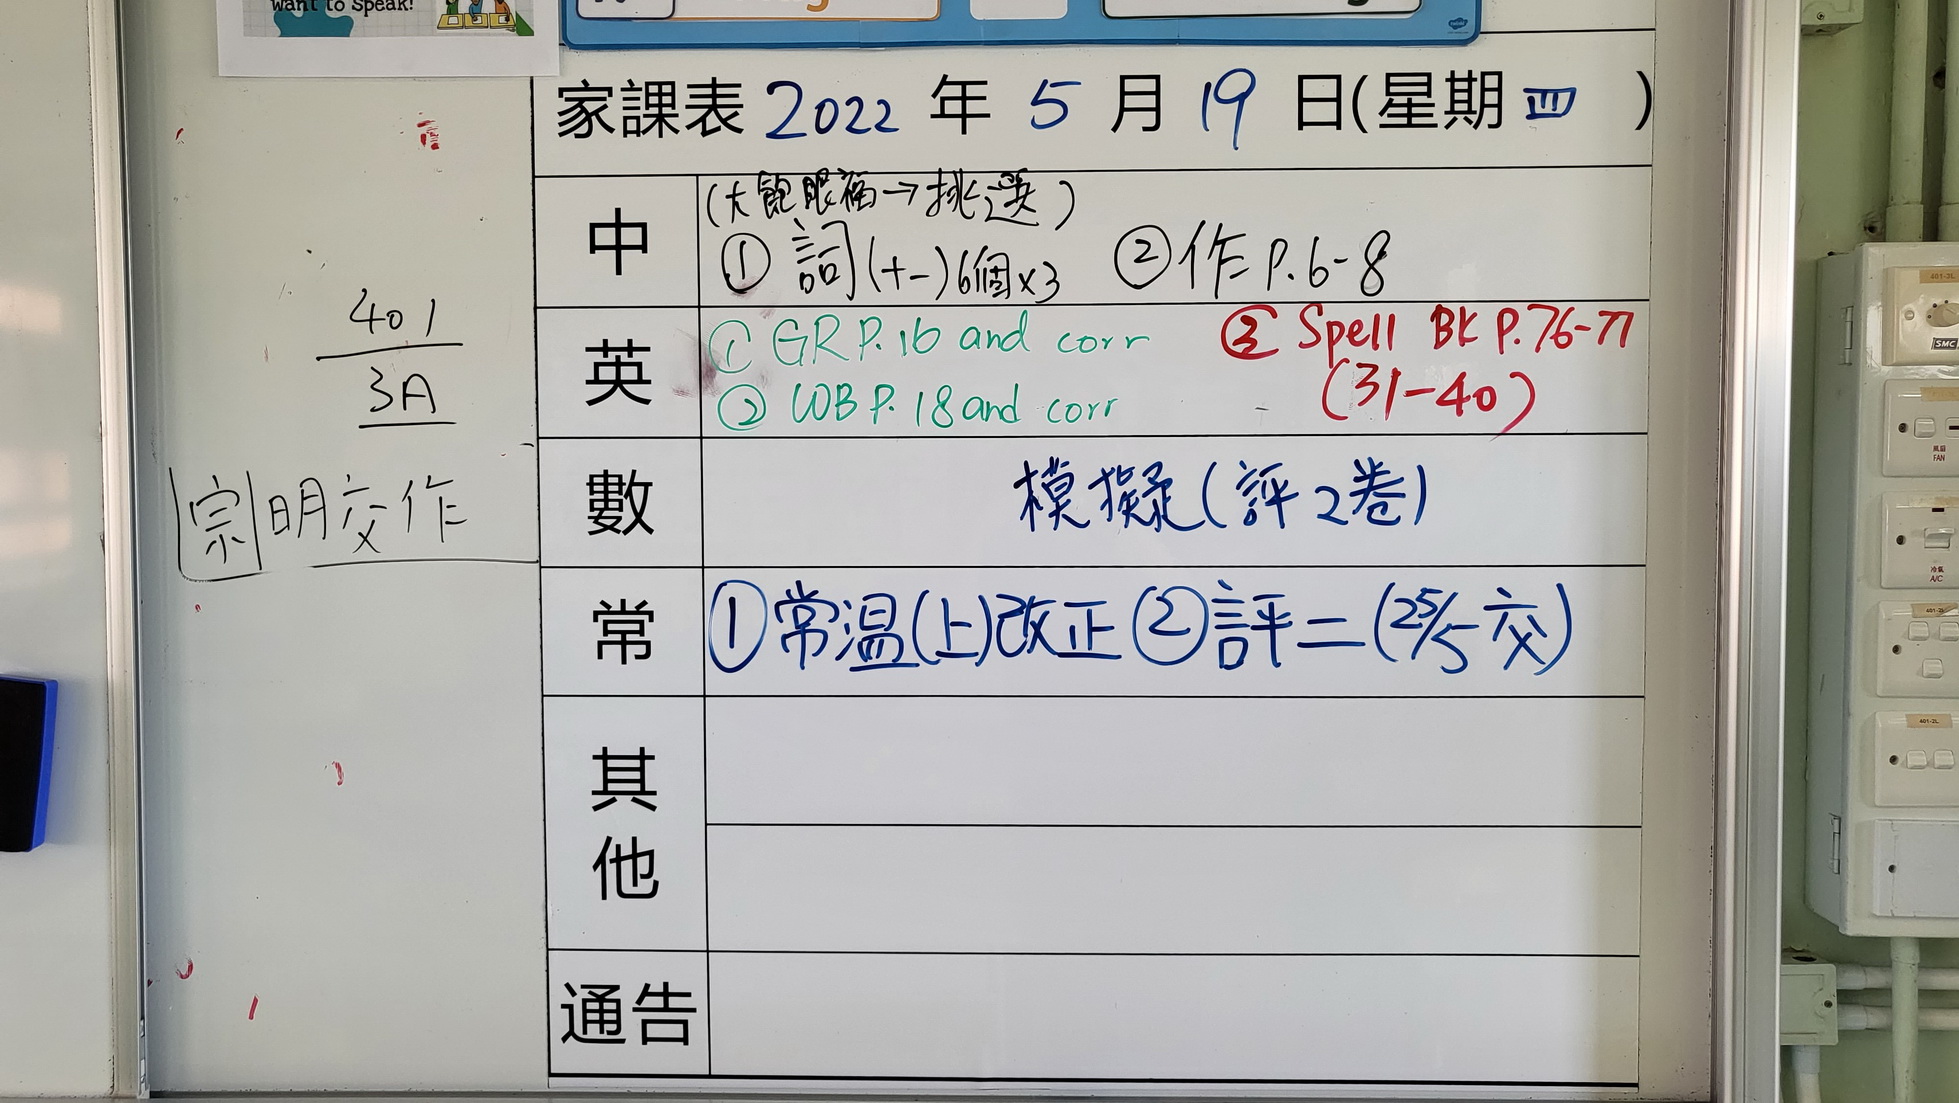 want to speak!
家課表 2022 年 5 月 19 日(星期四 )
中
(大飽眼福→挑選)
① 詞(十一)6個x3 ②作P.6-8
英
① GR P.16 and corr ③ Spell BK P.76-77
② WB P.18 and corr (31-40)
數
模擬(評2卷)
常
①常温(上)改正②評二(25/5交)
其他
通告
401
3A
宗明交作
401-3L
SMC
風扇
FAN
冷氣
A/C
401-2L